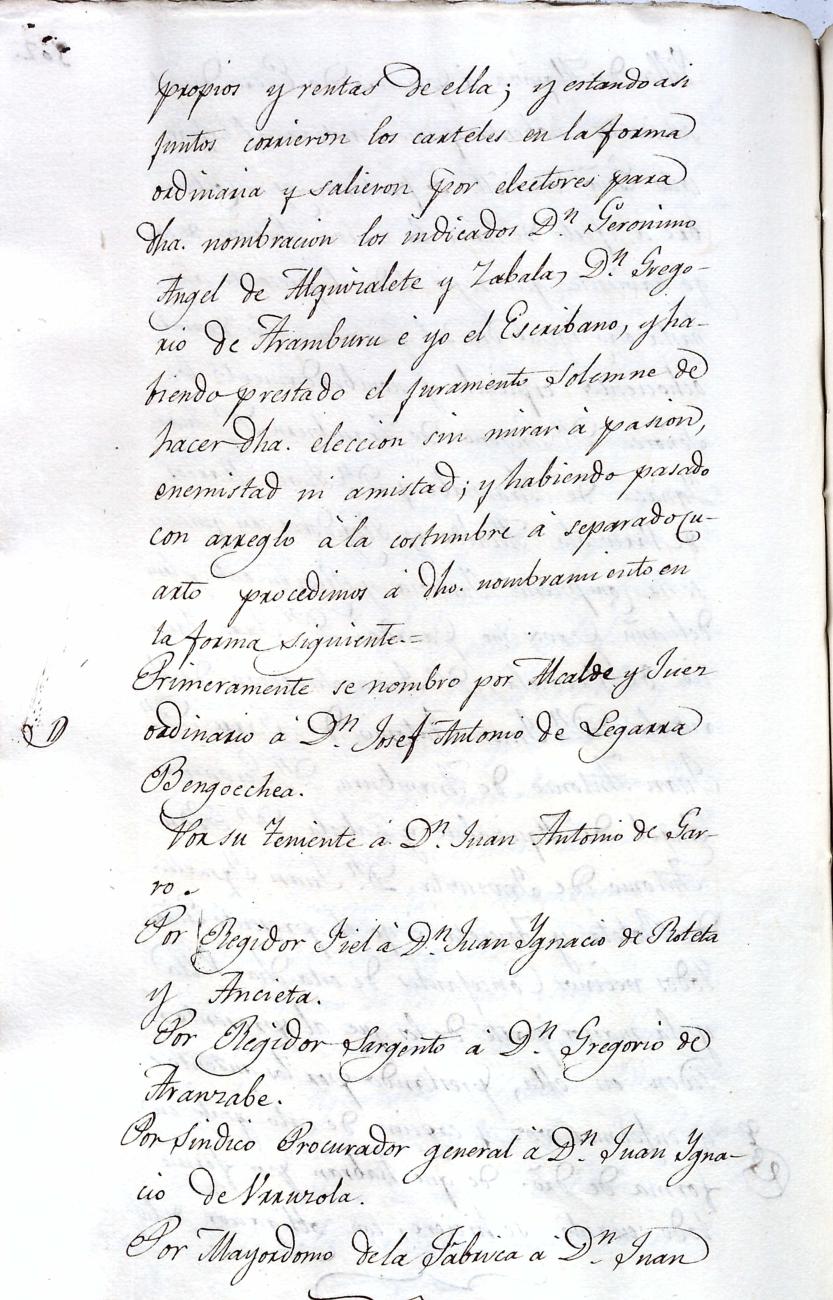 propios y rentas de ella; y estando asi
juntos corrieron los carteles en la forma
ordinaria y salieron por electores para
dha. nombracion los indicados Dn. Geronimo
Angel de Alquizalete y Zabala, Dn. Grego-
rio de Aramburu é yo el Escribano, y ha-
biendo prestado el juramento solemne de
hacer dha. eleccion sin mirar à pasion,
enemistad ni amistad; y habiendo pasado
con arreglo à la costumbre à separado cu-
arto procedimos à dho. nombramiento en
la forma siguiente.=
Primeramente se nombro por Alcalde y Juez
ordinario à Dn. Josef Antonio de Legarra
Bengoechea.
Por su Teniente à Dn. Juan Antonio de Gar-
ro.
Por Regidor Fiel à Dn. Juan Ygnacio de Roteta
y Ancieta.
Por Regidor Sargento à Dn. Gregorio de
Aranzabe.
Por Sindico Procurador general à Dn. Juan Ygna-
cio de Urruzola.
Por Mayordomo de la Fabrica à Dn. Juan